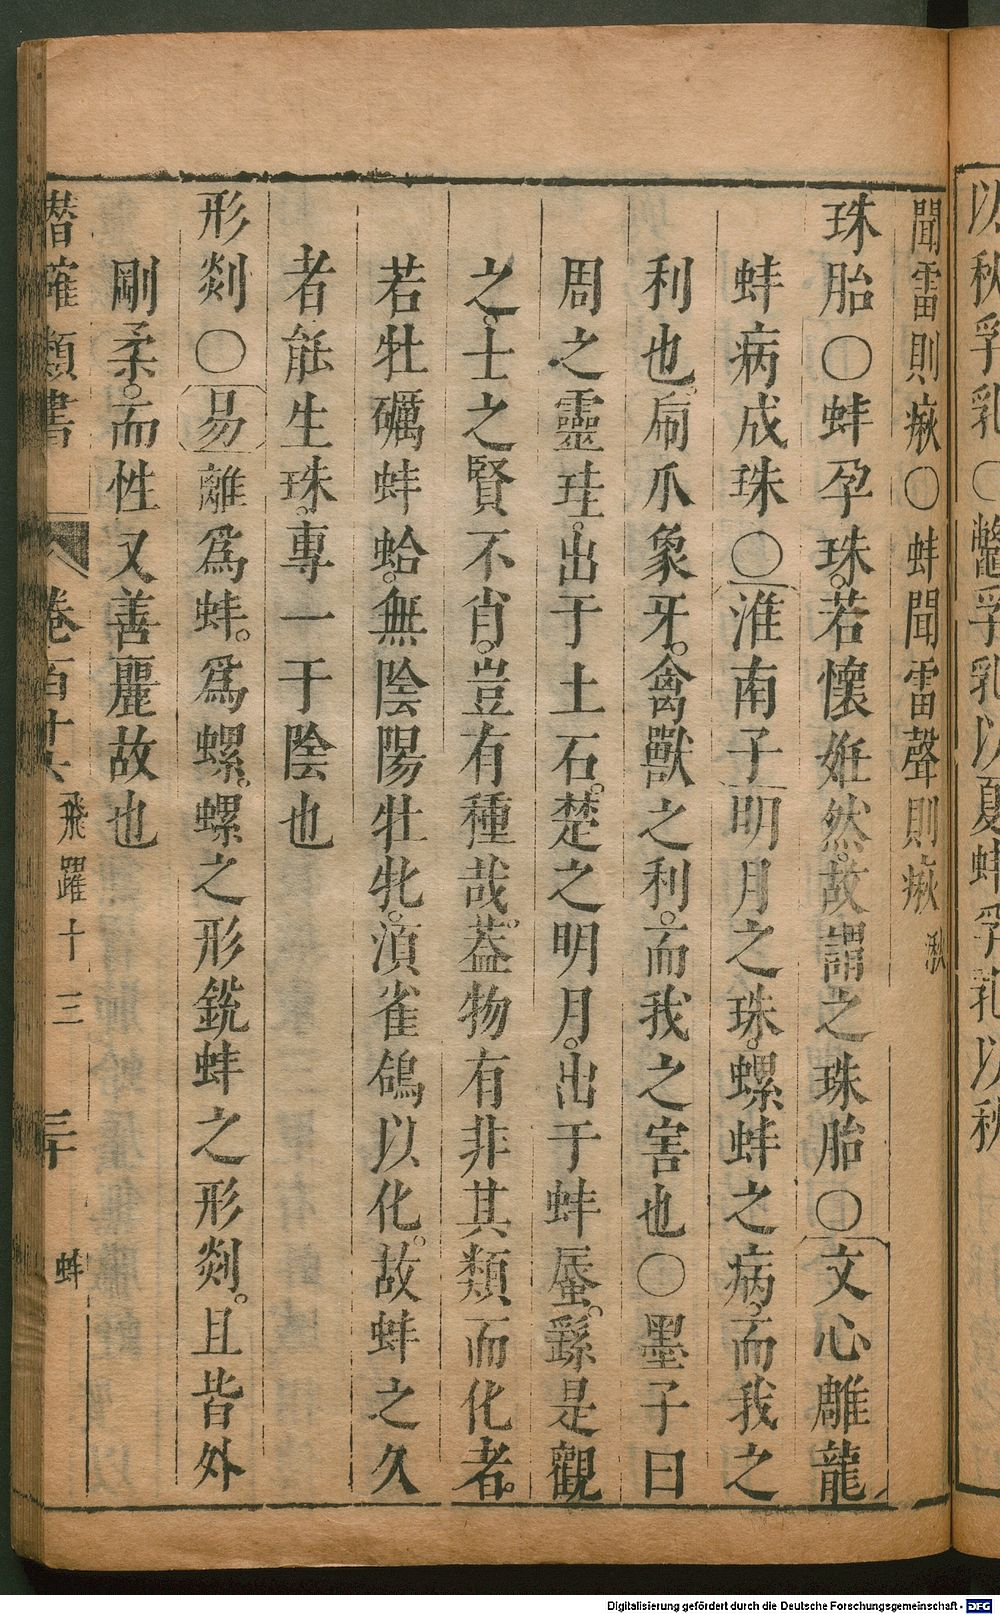 以秋孚乳○鼈孚乳以夏蚌孚乳以秋
聞雷則瘷○蚌聞雷聲則瘷
珠胎○蚌孕珠。若懷姙然。故謂之珠胎○文心雕龍
蚌病成珠○淮南子明月之珠。螺蚌之病。而我之
利也。爪象牙。禽獸之利。而我之害也○墨子曰
周之靈珪。出于土石。楚之明月。出于蚌蜃。繇是觀
之。士之賢不肖。豈有種哉。葢物有非其類而化者。
若牡礪蚌蛤。無陰陽牡牝。須雀鴿以化。故蚌之久
者能生珠。專一于陰也
形剡○易離爲蚌。爲螺。螺之形銳蚌之形剡。且皆外
剛柔。而性又善麗故也
潛確類書 卷百十 飛躍十三 三十 蚌
Digitalisierung gefördert durch die Deutsche Forschungsgemeinschaft - DFG